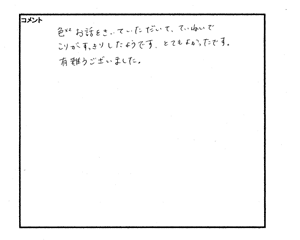 コメント
色々お話をきいていただいて、ていねいで
こりがすっきりしたようです。とてもよかったです。
有難うございました。